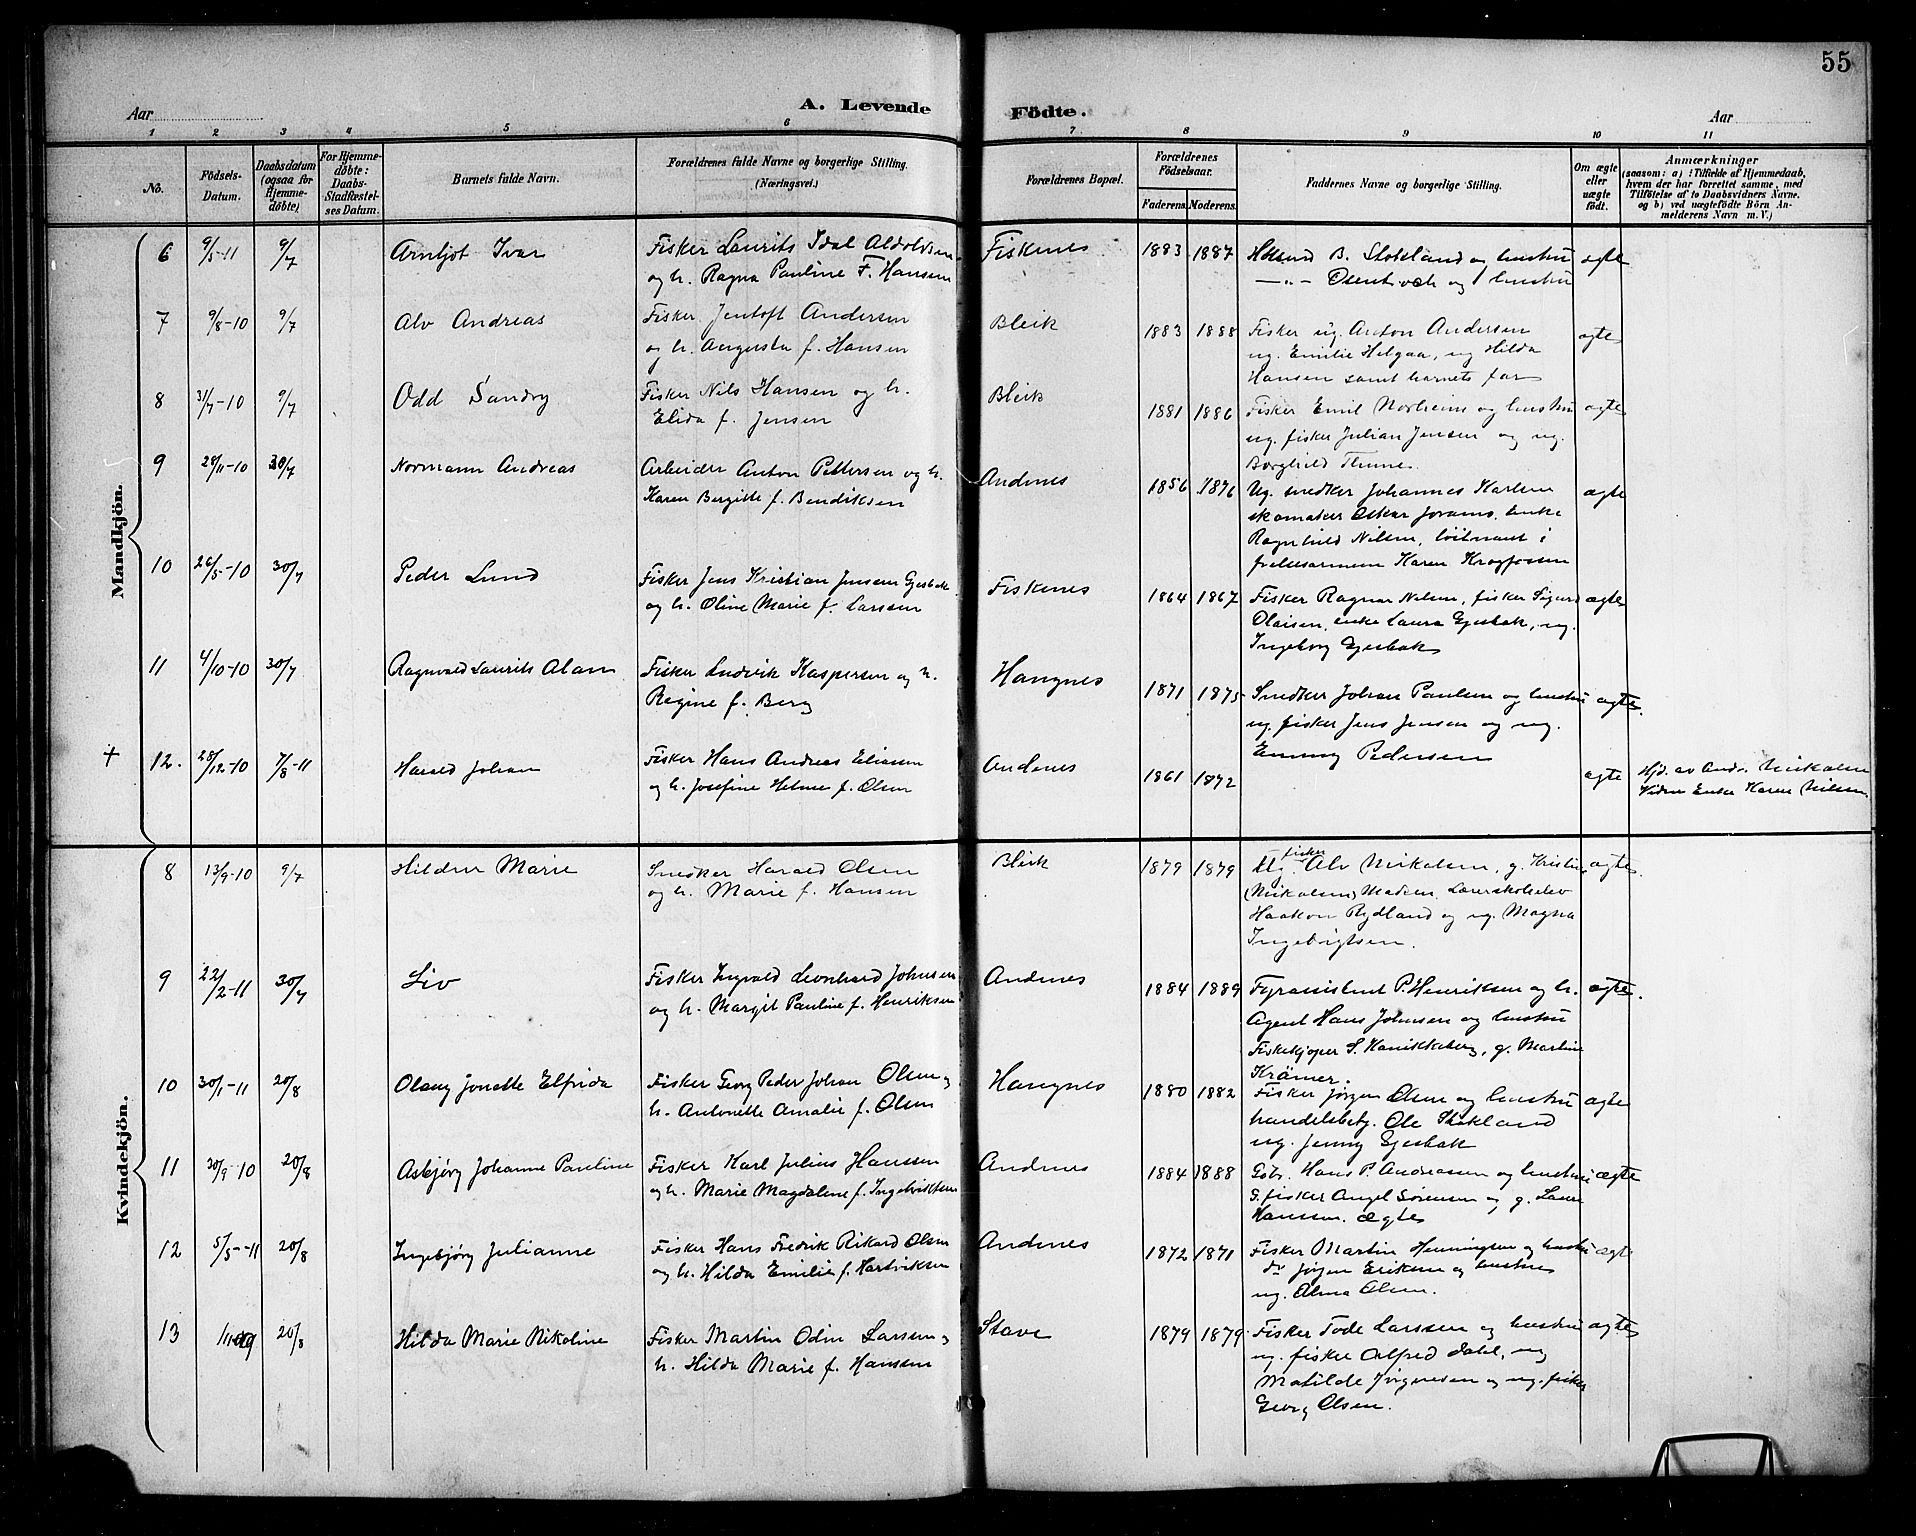 55
Aar
A. Levende Födte.
Aar
1 2 3 4 5 6 7 8 9 10 11
No.
Födsels-Datum.
Daabsdatum (ogsaa for Hjemme-döbte)
For Hjemme-döbte: Daabs-Stadfæstel-ses Datum.
Barnets fulde Navn.
Forældrenes fulde Navne og borgerlige Stilling.
(Næringsvei.)
Forældrenes Bopæl.
Forældrenes Födselsaar.
Faderens. Moderens.
Faddernes Navne og borgerlige Stilling.
Om ægte eller uægte födt.
Anmærkninger
(saasom: a) i Tilfælde af Hjemmedaab,
hvem der har forrettet samme, med
Tilföielse af to Daabsvidners Navne,
og b) ved uægtefödte Börn An-
melderens Navn m. V.)
Mandkjön.
6 9/5-11 9/7 Arnljot Ivar Fisker Laurits Idal Fiskenes 1883 1887 B. Stokeland og hustru ægte
og h. Ragna Pauline F. Hansen og hustru
7 9/8-10 9/7 Alv Andreas Fisker Jentoft Andersen Bleik 1883 1888 Fisker ug. Anton Andersen ægte
og h. Augusta f. Hansen ug. Emilie Helgaa, ug Hilda
Hansen samt barnets far
8 31/7-10 9/7 Odd Sandry Fisker Nils Hansen og h. Bleik 1881 1886 Fisker Emil Norheim og hustru ægte
Elida f. Jensen ug. fisker Julian Jensen og ug.
Borghild Thune.
9 28/11-10 30/7 Normann Andreas Arbeider Anton Pettersen og h. Andenes 1856 1876 Ug. snedker Johannes Karlsen ægte
Karen Bergitte f. Bendiksen skomaker Oskar Jorams. Enke
Ragnhild Nilsen, løitnant i
frelsesarmeen Karen Krogfossen
10 26/5-10 30/7 Peder Lund Fisker Jens Kristian Jensen Gjesbak Fiskenes 1864 1867 Fisker Ragnar Nilsen, fisker Sigurd ægte
og h. Oline Marie f. Larsen Olaisen, enke Laura Gjesbak, ug.
Ingeborg Gjesbak
11 4/10-10 30/7 Ragnvald Laurits Alam Fisker Ludvik Kaspersen og h. Haugnes 1871 1875 Snedker Johan Paulsen og hustru ægte.
Regine f. Berg ug. fisker Jens Jensen og ug.
Emmy Pedersen
+ 12. 28/12-10 7/8-11 Harald Johan Fisker Hans Andreas Eliassen Andenes 1861 1872 ægte Hjd. av Andr. Nikolsen
og h. Josefine Helene f. Olsen Vidne Enke Karen Nilsen.
Kvindekjön.
8 13/9-10 9/7 Hildur Marie Snedker Harald Olsen Bleik 1879 1879 Ug. fisker Alv Nikolsen, g. Kristine ægte.
og h. Marie f. Hansen (Nikolsen) Madsen, Lærerskoleelev
Haakon Rydland og ug. Magna
Ingebrigtsen.
9 22/2-11 30/7 Liv Fisker Ingvald Leonhard Johnsen Andenes 1884 1889 Fyrassistent P. Henriksen og h. ægte.
og h. Margit Pauline f. Henriksen Agent Hans Johnsen og hustru
Fiskekjøper S. Kanikkeberg, g. Martine
Krämer.
10 30/1-11 20/8 Olaug Jonette Elfrida Fisker Georg Peder Johan Olsen og Haugnes 1880 1882 Fisker Jørgen Olsen og hustru ægte
h. Antonette Amalie f. Olsen handelsbetj. Ole Stokland
ug. Jenny Gjesbak
11 30/9-10 20/8 Asbjørg Johanne Pauline Fisker Karl Julius Hanssen Andenes 1884 1888 Gbr. Hans P. Andreasen og hustru ægte
og h. Marie Magdalene f. Ingebriktsen g. fisker Angel Sørensen og g. Laura
Hanssen. ægte
12 5/5-11 20/8 Ingebjørg Julianne Fisker Hans Fredrik Rikard Olsen Andenes 1872 1871 Fisker Martin Henningsen og hustru ægte
og h. Hilda Emilie f. Hartviksen do Jørgen Eriksen og hustru
ug. Alma Olsen.
13 20/8 Hilda Marie Nikoline Fisker Martin Odin Larsen og Stave 1879 1879 Fisker Tode Larssen og hustru ægte
h. Hilda Marie f. Hansen ug. fisker Alfred Dahl, ug
Matilde Jørgensen og ug. fisker
Georg Olsen.